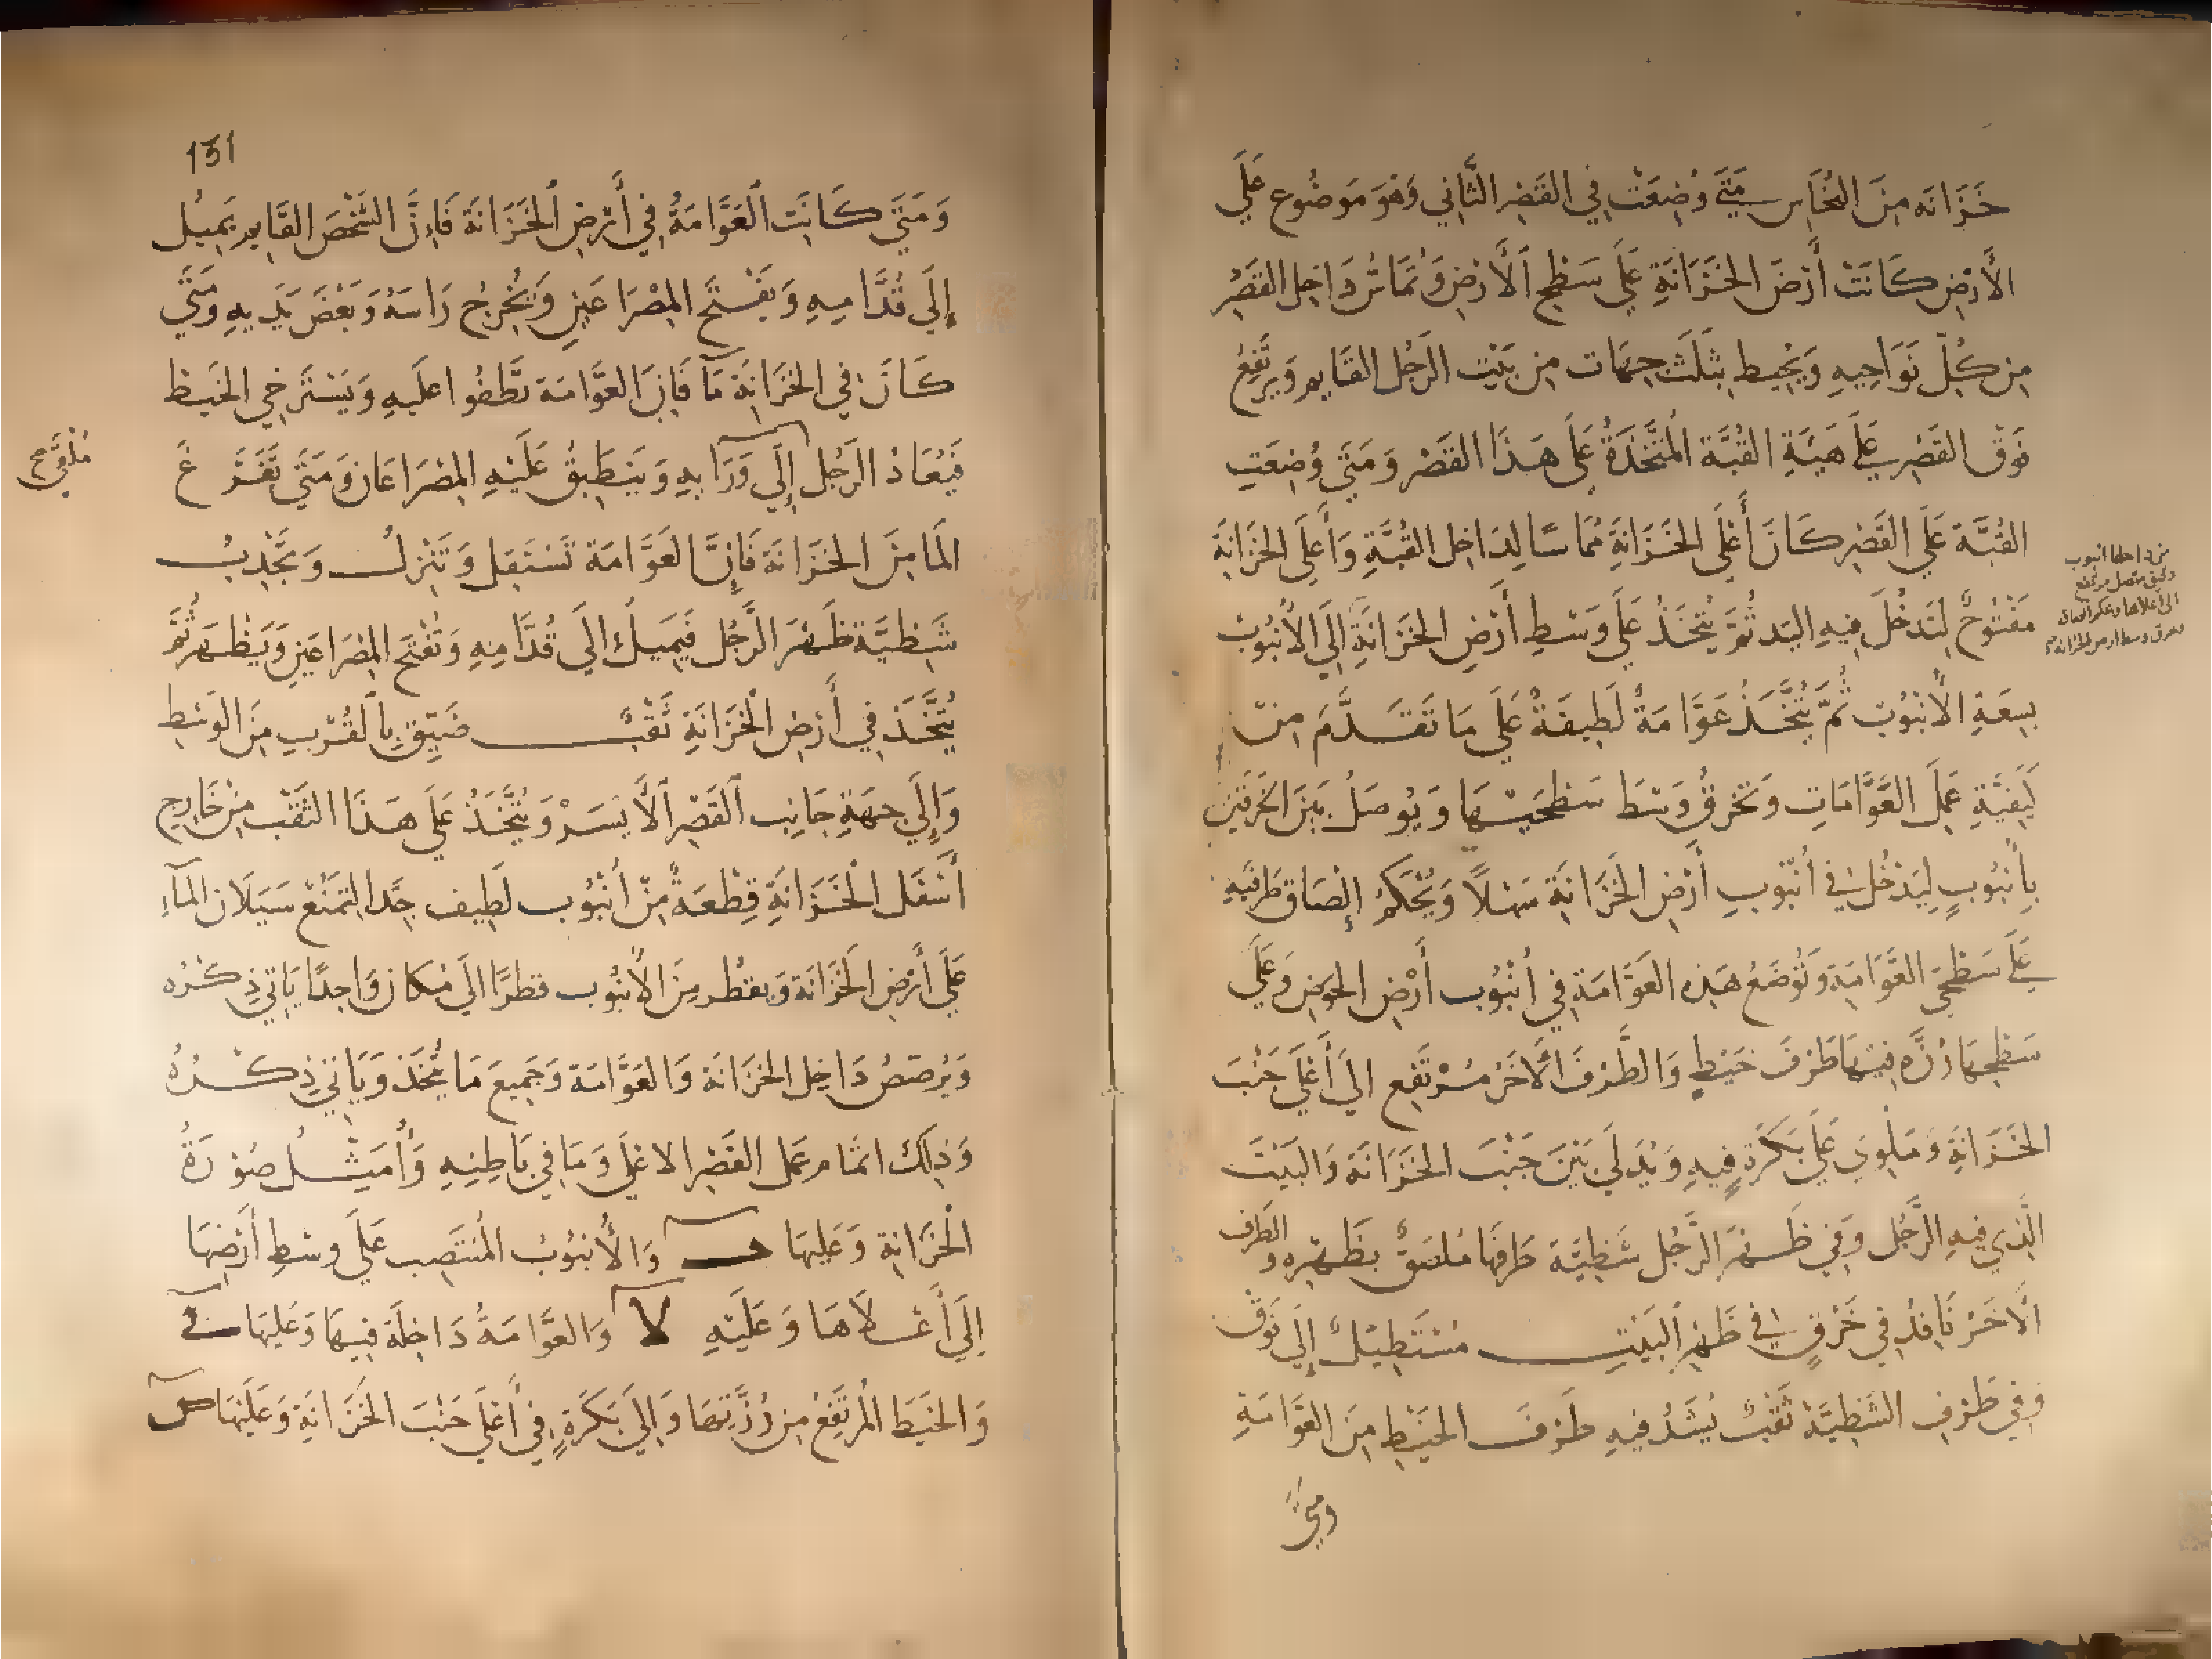 خَزَانه مِنَ النُحَاسِ مَتَى وُضِعَتْ فِي القَصْرِ الثَّانِي وَهوَ مَوضُوع عَلَى
الأَرْضِ كَانَتْ أَرْضَ الخَزَانَةِ عَلَى سَطحِ الأَرضِ وَتمَاسّ دَاخِل القَصْرِ
مِن كُلّ نَوَاحِيهِ وَيُحِيط بثلَث جِهَات مِن بَيْت الرَجُل القَايم وَيرتَفِعُ
فَوْق القَصْرِ عَلَى هَيْئَةِ القُبَّة المُتَّخَذَةُ عَلَى هَذَا القَصْر وَمَتَى وُضِعَت
القُبَّة عَلَى القَصْرِ كَانَ أَعْلَى الخَزَانَةِ مُمَاسًا لِدَاخِل القُبَّةِ وَأَعلَى الخَزَانَةِ
مَفْتُوحٌ لتَدخُلَ فِيهِ اليَد ثُمَّ يُتخَذُ عَلَى وَسْطِ أَرْضِ الخَزَانَةِ إِلَى الأُنبُوبْ
من داخلها انبوب
دقيق متصل مرتفع
الى اعلاها
بِسِعَةِ الأُنبُوْبْ ثمّ يُتَّخَذُ عَوَّامَةٌ لَطِيفَةٌ عَلَى مَا تَقَدَّمَ مِنْ
كَيفيَّةِ عَمَلِ العَوَّامَاتِ وَتخرقُ وَسْطَ سَطحَيْهَا وَيُوصَلُ بَيْنَ الخَرقَيْنِ
بِأُنبُوبٍ لِيَدْخُلَ فِي أُنبُوبِ أَرْضِ الخَزَانَةِ سَهْلًا وَيُحْكَمُ إِلصَاق طَرَفَيْهِ
عَلَى سَطْحَيَ العَوَّامَةِ وَتُوضَعُ هَذِه العَوَّامَة فِي أُنبُوب أَرْضِ الحَوضِ وَعَلَى
سَطحِهَا رزَّه فِيْهَا طَرَفَ خَيْطٍ وَالطَّرَفَ الأَخَرُ مُرْتَفِع الَى أَعْلَى جَنْبَ
الخَزَانَةِ وَمَلْوِي عَلَى بَكَرَةٍ فِيهِ وَيُدَلَى بَيْنَ جَنْبَ الخَزَانَة وَالبَيْتَ
الَّذِي فِيهِ الرَّجُل وَفِي ظَهْرِ الرَّجُل شَظِيَّة طَرفهَا مُلصَقٌ بظَهْرِهِ وَ الطَرف
الأَخَرْ نَافِذٌ فِي خَرْقٍ فِي ظَهْرِ البَيْتِ مُسْتَطِيْلٌ إِلَى فَوْق
وَفِي طَرَفِ الشَظِيَّة ثَقْبٌ يُشَدُّ فِيهِ طَرَف الخَيْطِ مِنَ العَوَّامَةِ
ومتى
151
وَمَتَى كَانَت العَوَّامَةُ فِي أَرْضِ الخَزَانَة فَإِنَّ الشَّخْصَ القَايم يَمِيْل
إِلَى قُدَّامِهِ وَيَفْتَح المِصْرَاعَيْنِ وَيُخْرِجُ رَاسَهُ وَبَعْضَ يَدَيهِ وَمَتَى
كَانَ فِي الخَزَانَةِ مَآ فَإِنَ العَوَّامَة تَطفُوا عَلَيهِ وَيَسْتَرخِي الخَيط
فَيُعَادُ الرَجُل إِلَى وَرَآيهِ وَيَنْطَبِقُ عَلَيْهِ المِصْرَاعَان وَمَتَى تَفَرَّغَ
المَا مِنَ الخَزَانَة فَإِنَّ العَوَّامَة تَسْتَفِل وَتَنْزِلُ وَتَجْذِبُ
شَظِيَّة ظَهْرَ الرَّجُل فَيَمِيلُ الَى قُدَّامِهِ وَتُفْتَح المِصْرَاعَينِ وَيَظْهَر ثُمَّ
يُتَّخَذ فِي أَرْضِ الخَزَانَةِ ثَقْبٌ ضَيّق بِالقُرْبِ مِنَ الوَسَط
وَإِلَى جِهَةِ جَانِب القَصْرِ الأَيسَرْ وَيُتَّخَذُ عَلَى هَذَا الثَقْب مِنْ خَارِج
أَسْفَل الخَزَانَةِ قِطْعَةٌ مِنْ أُنبُوب لَطِيف جَّدا لتمْنَعْ سَيَلَان المَآءِ
عَلَى أَرْضِ الخَزَانَة وَيقطُر مِنَ الأُنبُوب قطرًا الَى مَكان وَاحِدًا يَاتِي ذِكْرُه
وَيُرصّصُ دَاخِل الخَزَانَة وَالعَوَّامَة وَجَمِيعَ مَا يُتّخَذ وَيَاتِي ذِكْرُهُ
وَذَلِكَ اتمَام عَمَل القَصْر الاعْلَى وَمَا فِي بَاطِنِهِ وَأُمَثِّلُ صُوْرَةُ
الخَزَانةِ وَعَليهَا وَالأُنبُوبُ المُنتَصِب عَلَى وسْطِ أَرْضِهَا
إِلَى أَعْلَاهَا وَعَلَيْهِ لا وَالعَوَّامَةُ دَاخِلَة فِيهَا وَعَليهَا
وَالخَيَط المُرتَفِعْ مِن رُزَّتِهَا وَإِلَى بَكَرَةٍ فِي أَعْلَى جَنْبَ الخَزَانَةِ وَعَلَيْهَا ص